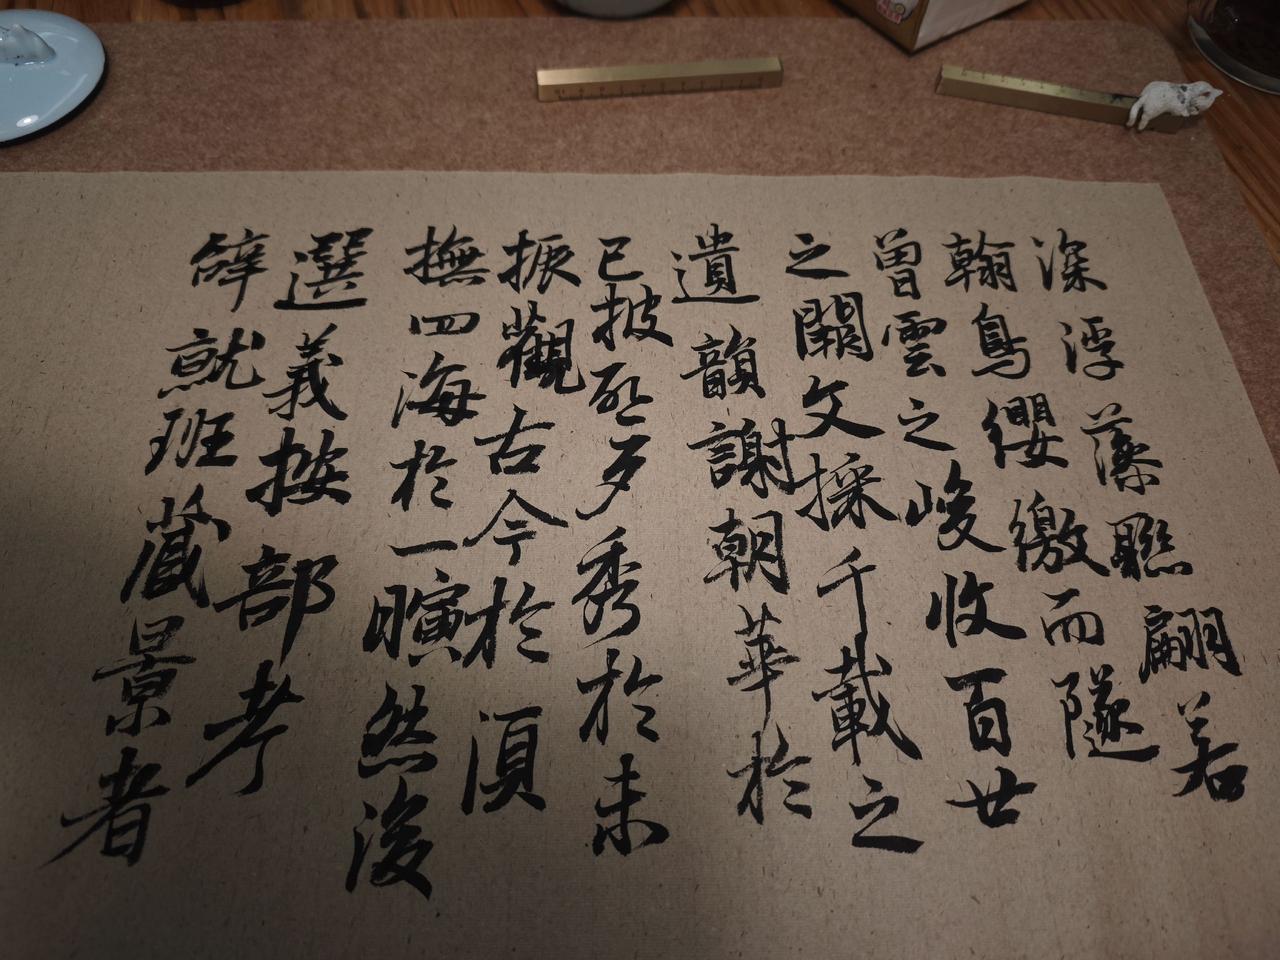 深浮藻聮翩若
翰鳥纓繳而隧
曾雲之峻收百世
之闕文採千載之
遺韻謝朝華於
已披啓夕秀於未
振觀古今於湏
撫四海於一瞚然後
選義按部考
辭就班藏景者